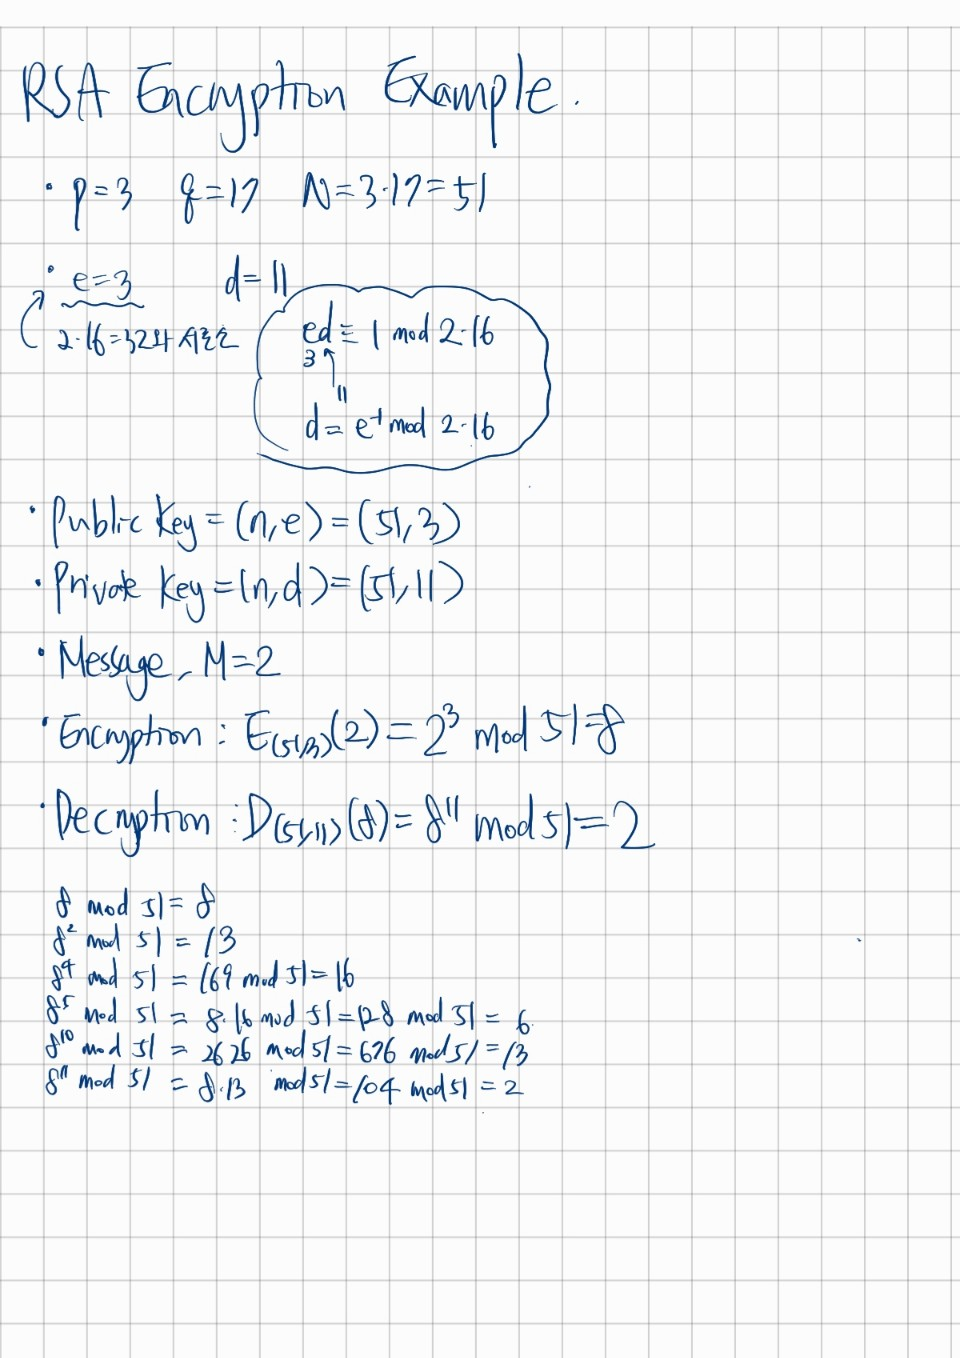 RSA Encryption Example.
· p=3 q=17 N=3·17=51
· e=3 d=11
2·16=32와 서로소
ed ≡ 1 mod 2·16
3
11
d = e⁻¹ mod 2·16
· Public Key = (n,e) = (51,3)
· Private Key = (n,d) = (51,11)
· Message, M=2
· Encryption : E(51,3)(2) = 2³ mod 51=8
· Decryption : D(51,11)(8) = 8¹¹ mod 51=2
8 mod 51 = 8
8² mod 51 = 13
8⁴ mod 51 = 169 mod 51 = 16
8⁵ mod 51 = 8·16 mod 51 = 128 mod 51 = 6
8¹⁰ mod 51 = 26 26 mod 51 = 676 mod 51 = 13
8¹¹ mod 51 = 8·13 mod 51 = 104 mod 51 = 2